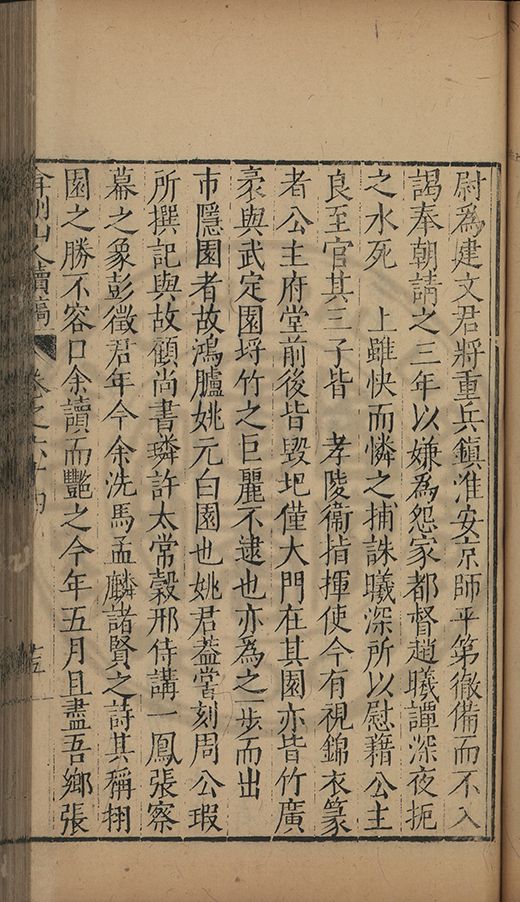 尉為建文君將重兵鎮淮安京師平第徹備而不入
謁奉朝請之三年以嫌為怨家都督趙曦譚深夜扼
之水死　上雖快而憐之捕誅曦深所以慰藉公主
良至官其三子皆　孝陵衞指揮使今有視錦衣篆
者公主府堂前後皆毀圯僅大門在其園亦皆竹廣
豪與武定園埒竹之巨麗不逮也亦為之一步而出
市隱園者故鴻臚姚元白園也姚君葢嘗刻周公瑕
所撰記與故顧尚書璘許太常穀邢侍講一鳳張察
幕之象彭徵君年今余洗馬孟麟諸賢之詩其稱栩
園之勝不容口余讀而艷之今年五月且盡吾鄉張
弇州山人續稿　卷之六十四　十五